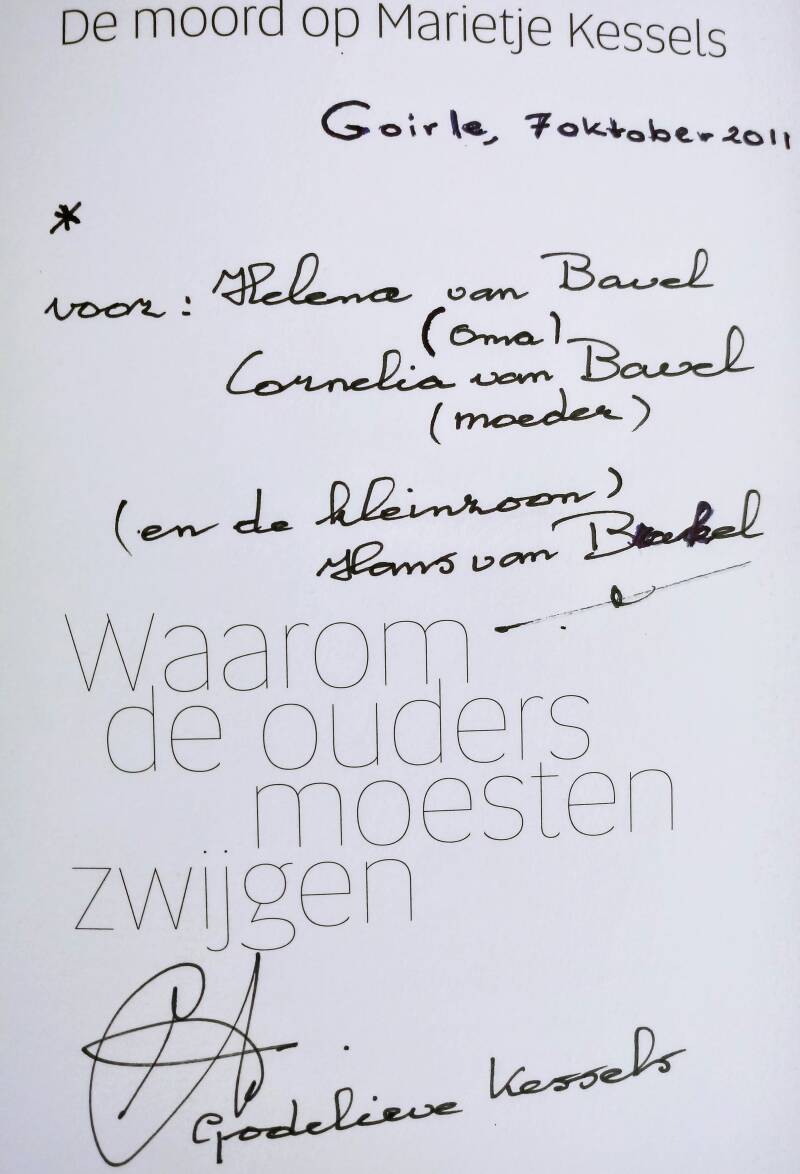 De moord op Marietje Kessels
Goirle, 7 oktober 2011
*
voor: Helena van Bavel
(oma)
Cornelia van Bavel
(moeder)
(en de kleinzoon)
Hans van Brakel
Waarom
de ouders
moesten
zwijgen
Godelieve Kessels